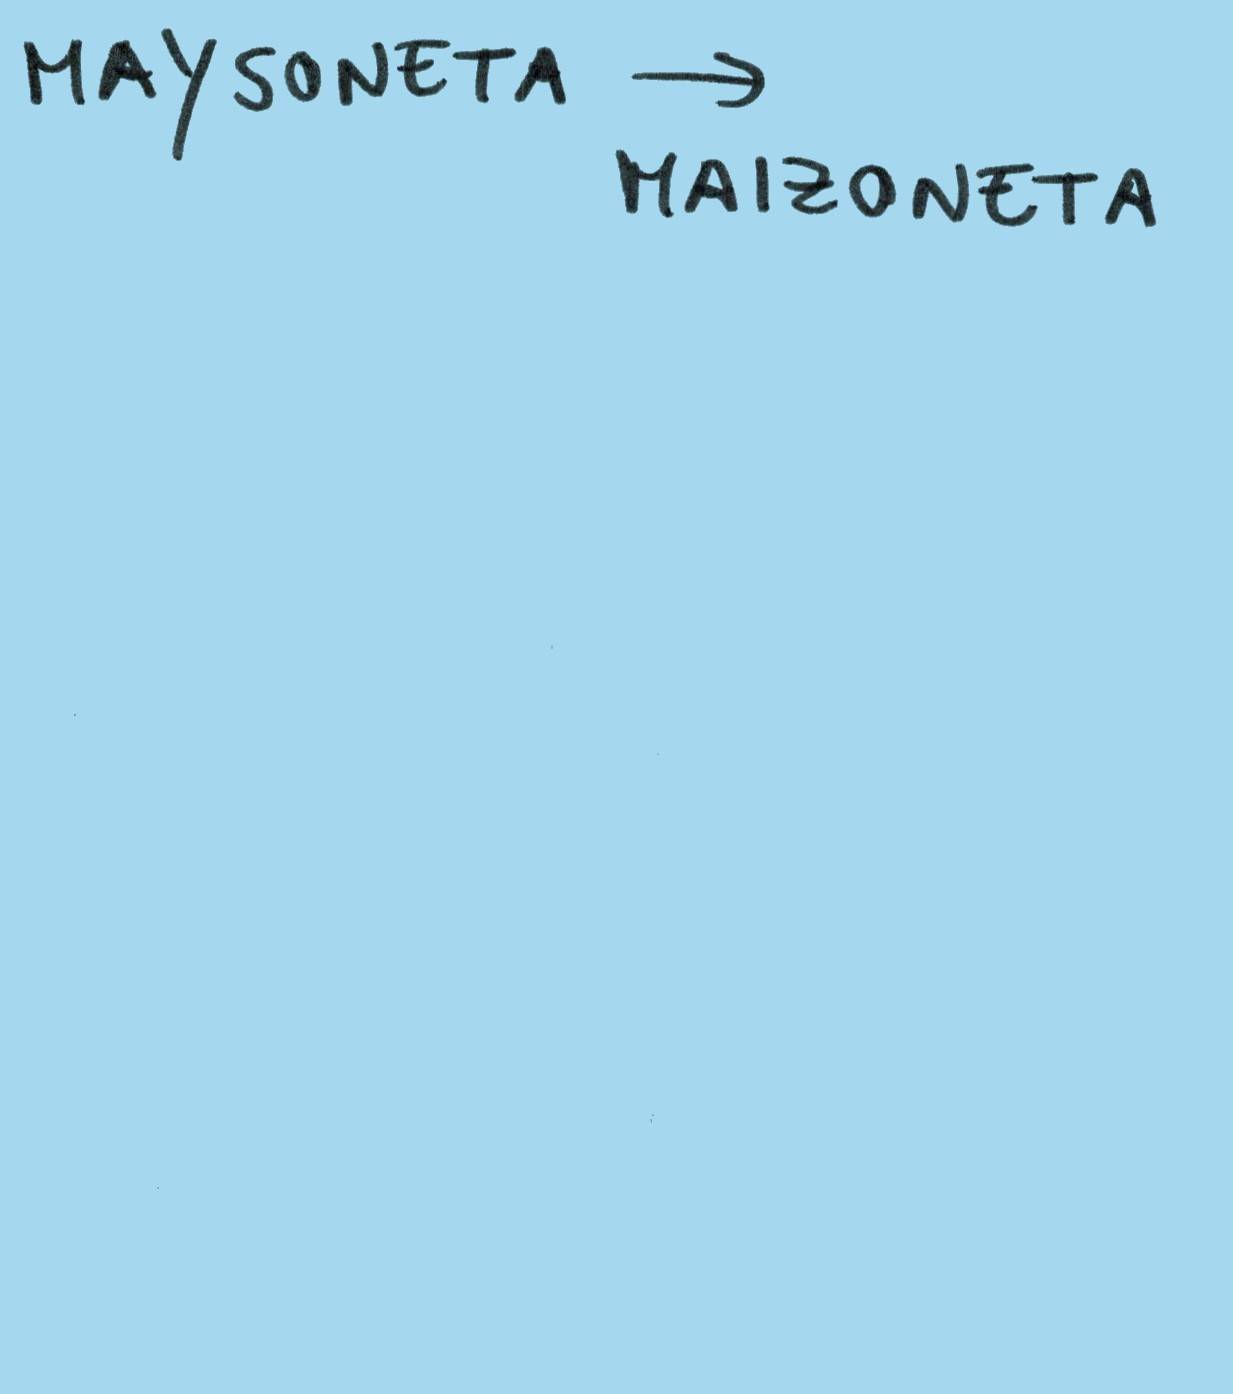 MAYSONETA →
MAIZONETA